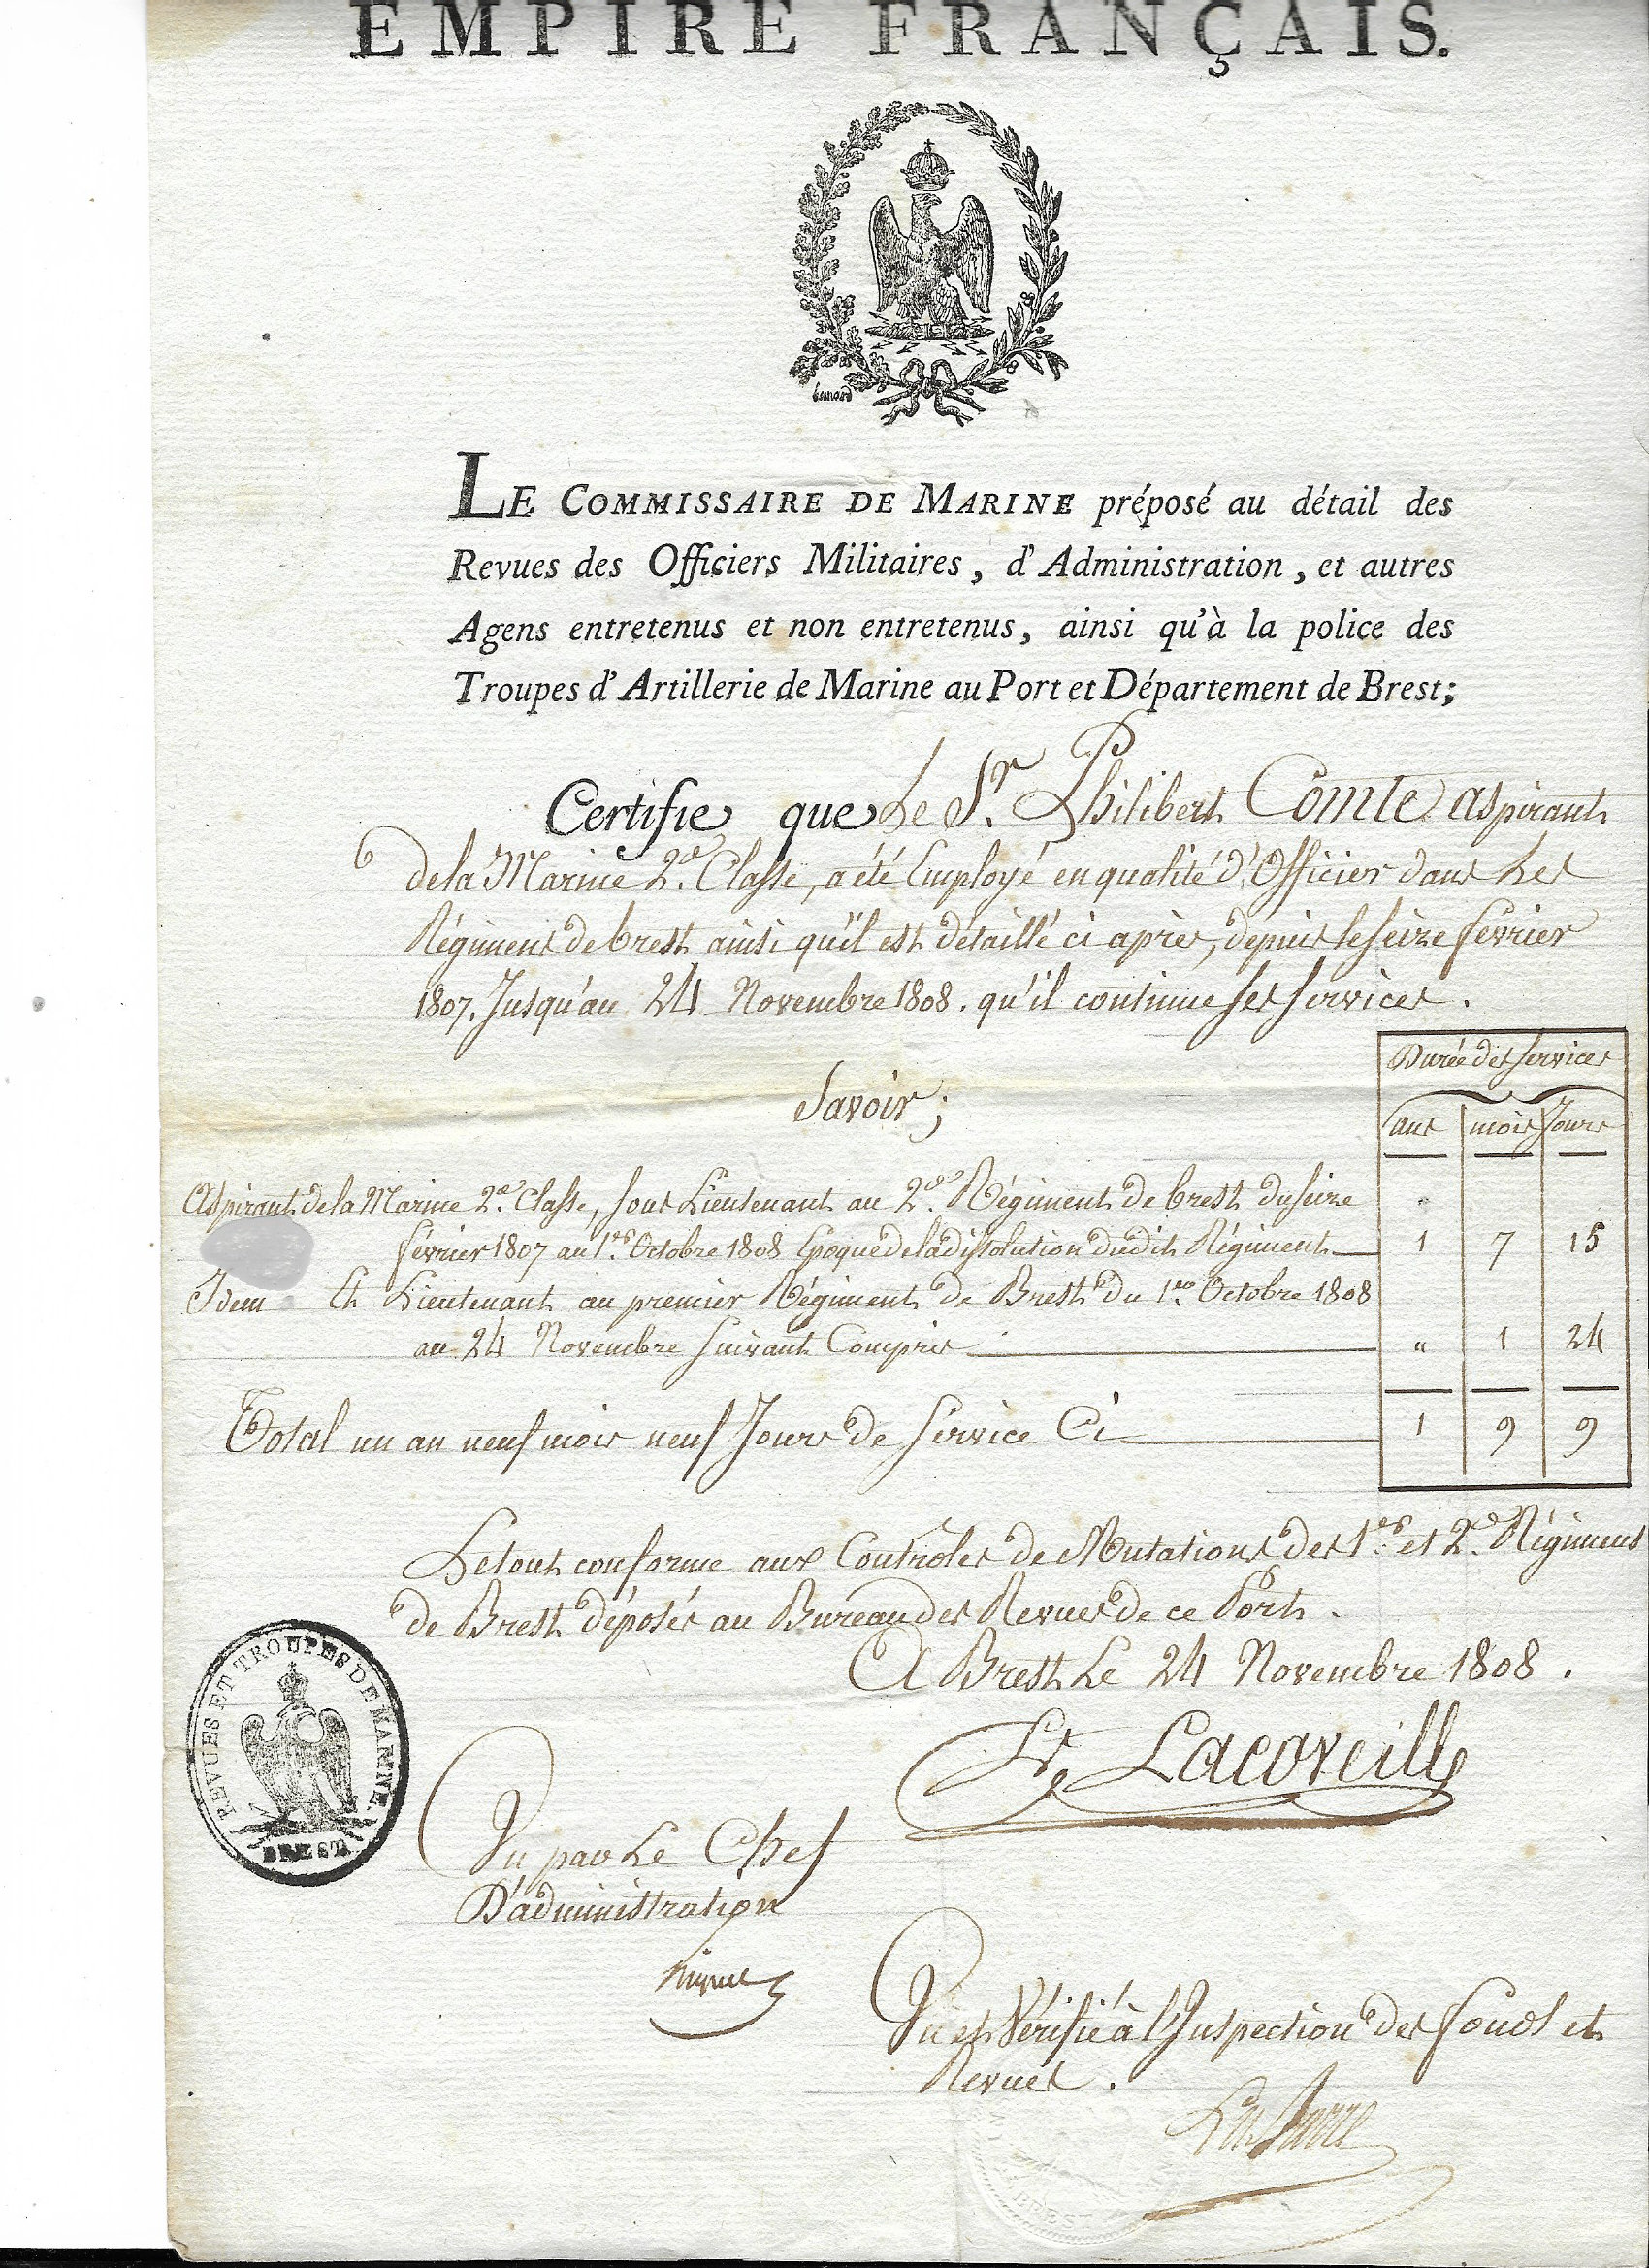 EMPIRE FRANÇAIS.
LE COMMISSAIRE DE MARINE préposé au détail des
Revues des Officiers Militaires, d'Administration, et autres
Agens entretenus et non entretenus, ainsi qu'à la police des
Troupes d'Artillerie de Marine au Port et Département de Brest;
Certifie que Le Sr. Philibert Comte aspirant
de la Marine 2e. Classe, a été Employé en qualité d'Officier dans Les
Régimens de brest ainsi qu'il est détaillé ci après, depuis le seize février
1807. Jusqu'au 24 Novembre 1808. qu'il continue ses services.
Durée des services
Savoir;
ans mois Jours
Aspirant de la Marine 2e. Classe, sous Lieutenant au 2e. Régiment de brest du seize
février 1807 au 1er. Octobre 1808 Epoque de la dissolution dudit Régiment 1 7 15
Idem Et Lieutenant au premier Régiment de Brest du 1er. Octobre 1808
au 24 Novembre suivant Compris " 1 24
Total un an neuf mois neuf Jours de Service Ci 1 9 9
Le tout conforme aux Controles de Mutations des 1er. et 2e. Régimens
de Brest déposés au Bureau des Revues de ce Port.
A Brest Le 24 Novembre 1808.
REVUES ET TROUPES DE MARINE
BREST
Lacoveille
Vu par Le Chef
D'administration
Vu et Vérifié à l'Inspection des fonds et
Revues.
BREST